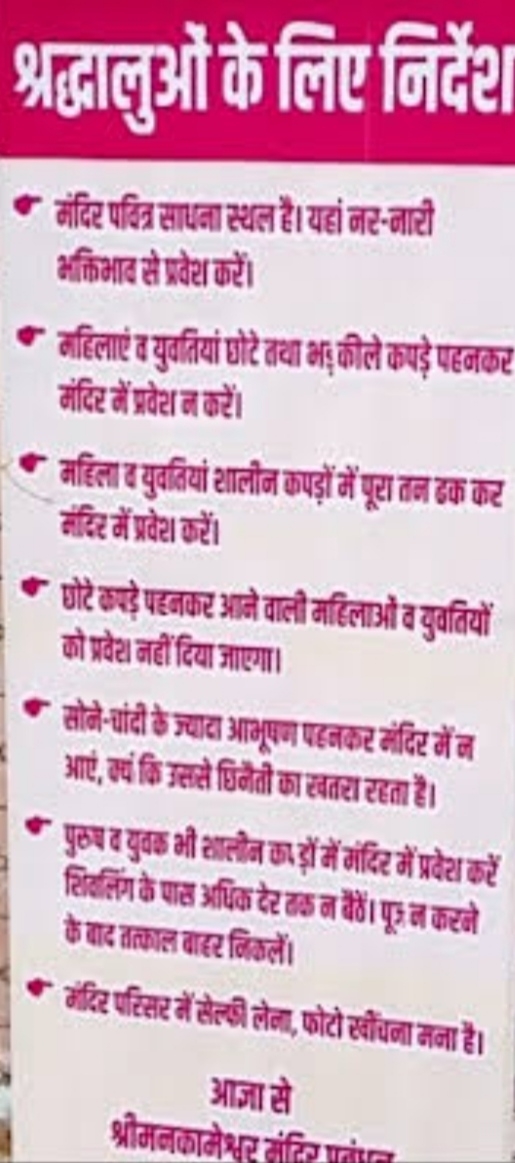 श्रद्धालुओं के लिए निर्देश
मंदिर पवित्र साधना स्थल है। यहां नर-नारी
भक्तिभाव से प्रवेश करें।
महिलाएं व युवतियां छोटे तथा कपड़े पहनकर
मंदिर में प्रवेश न करें।
महिला व युवतियां शालीन कपड़ों में पूरा तन ढक कर
मंदिर में प्रवेश करें।
छोटे कपड़े पहनकर आने वाली महिलाओं व युवतियों
को प्रवेश नहीं दिया जाएगा।
सोने-चांदी के ज्यादा आभूषण पहनकर मंदिर में न
आएं, क्यं कि उससे छिनैती का खतरा रहता है।
पुरुष व युवक भी शालीन में मंदिर में प्रवेश करें
शिवलिंग के पास अधिक देर तक न बैठें। न करने
के बाद तत्काल बाहर निकलें।
मंदिर परिसर में सेल्फी लेना, फोटो खींचना मना है।
आज्ञा से
श्रीमनकामेश्वर मंदिर